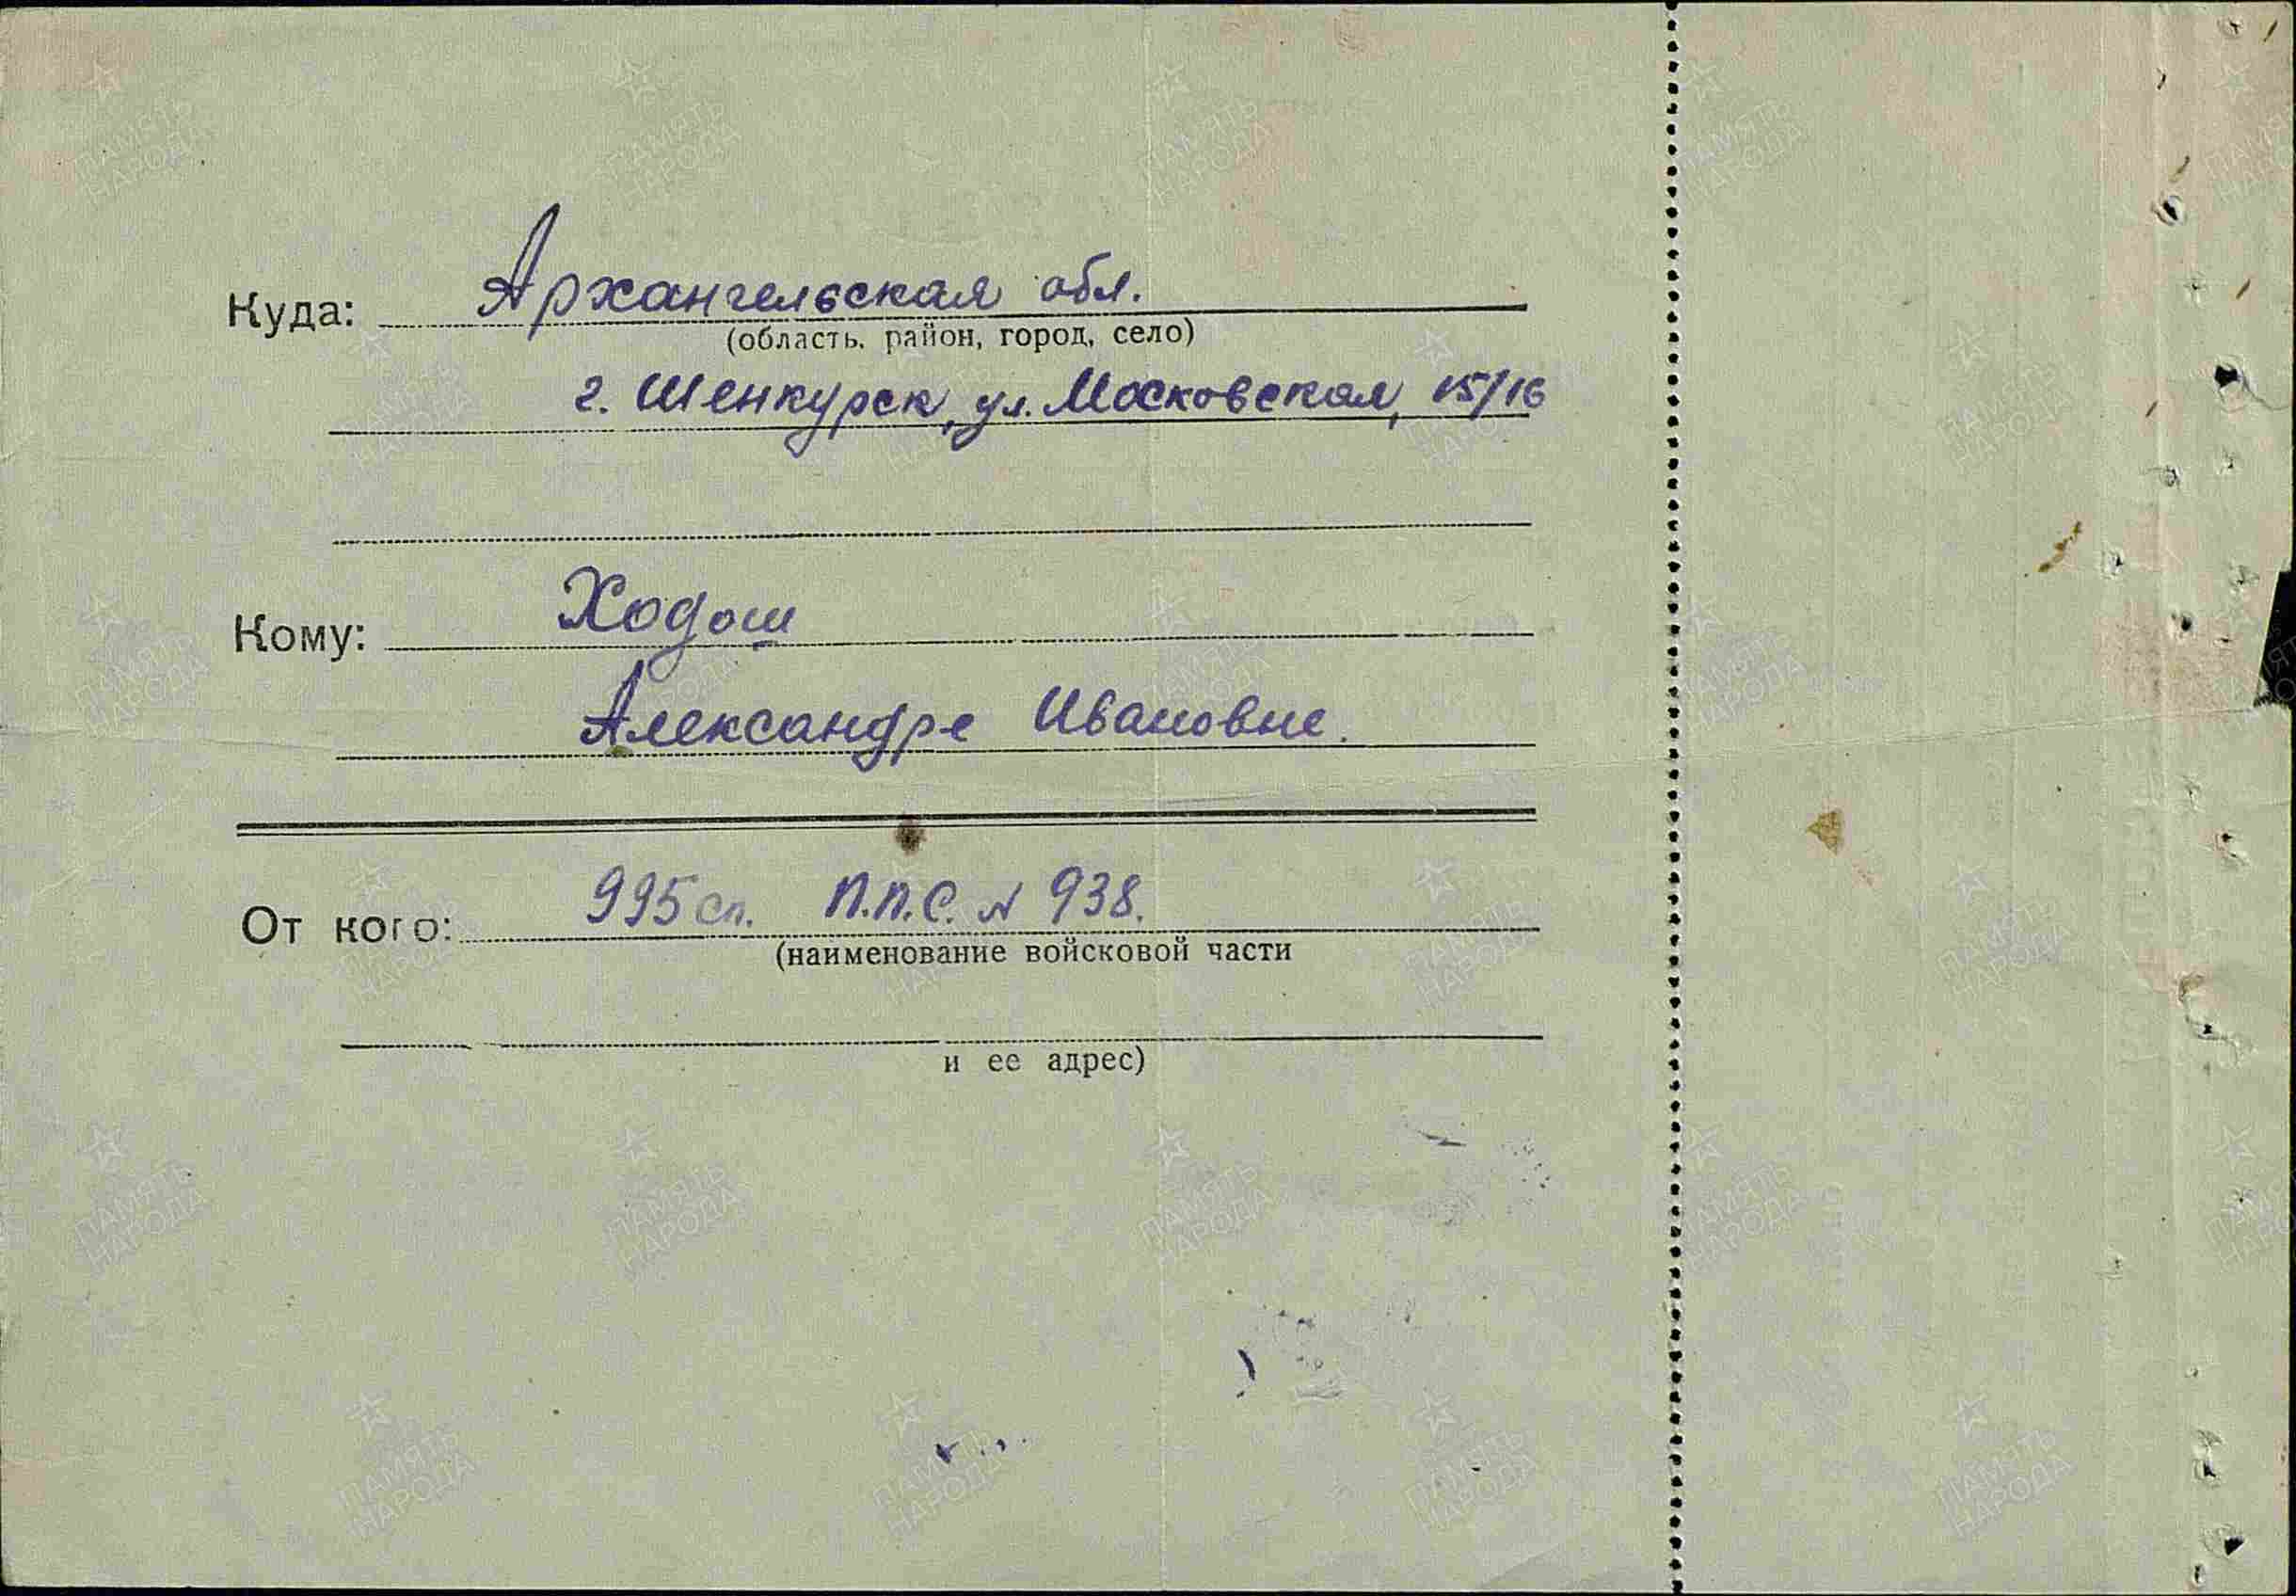 Куда: Архангельская обл.
(область, район, город, село)
г. Шенкурск, ул. Московская, 15/16
Кому: Ходош
Александре Ивановне.
От кого: 995 сп. П.П.С. N 938.
(наименование войсковой части
и ее адрес)
ПАМЯТЬ
НАРОДА